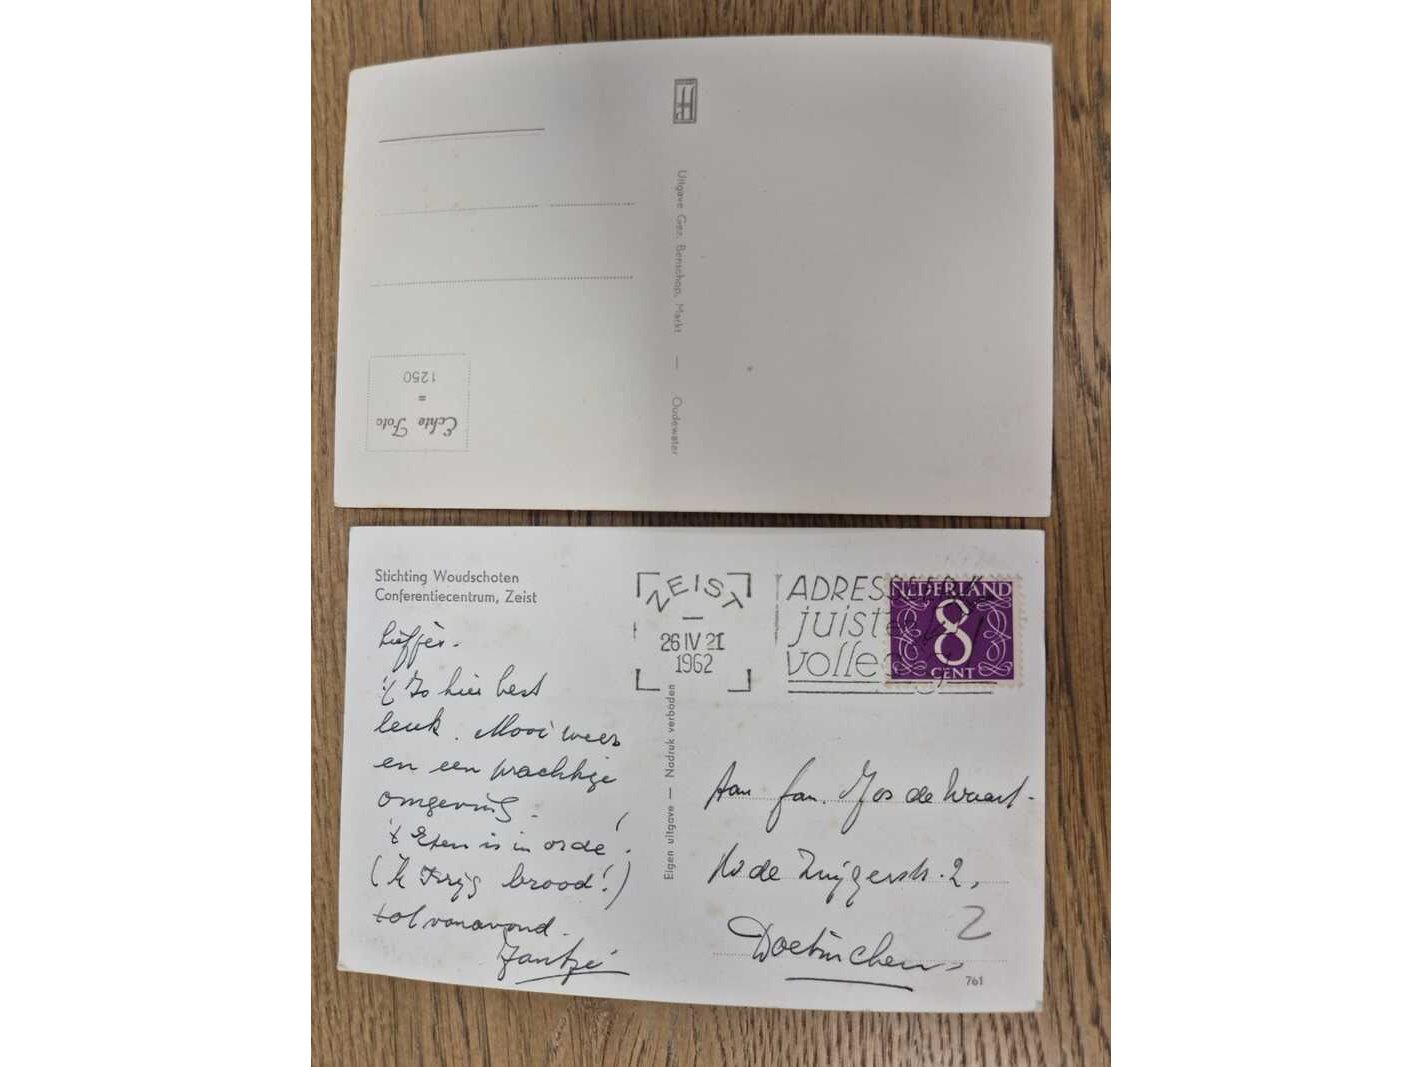 Uitgave Gez. Benschop, Markt — Oudewater
1250
=
Echte Foto
Stichting Woudschoten
Conferentiecentrum, Zeist
ZEIST
26 IV 21
1962
ADRESSEER
juist en
volledig
NEDERLAND
8
CENT
't Is hier best
leuk. Mooi weer
en een prachtige
omgeving.
't Eten is in orde!
(Ik krijg brood!)
tot vanavond.
Jantje
Eigen uitgave — Nadruk verboden
Aan fam. Jos de Waart.
de 2,
2
Doetinchem
761